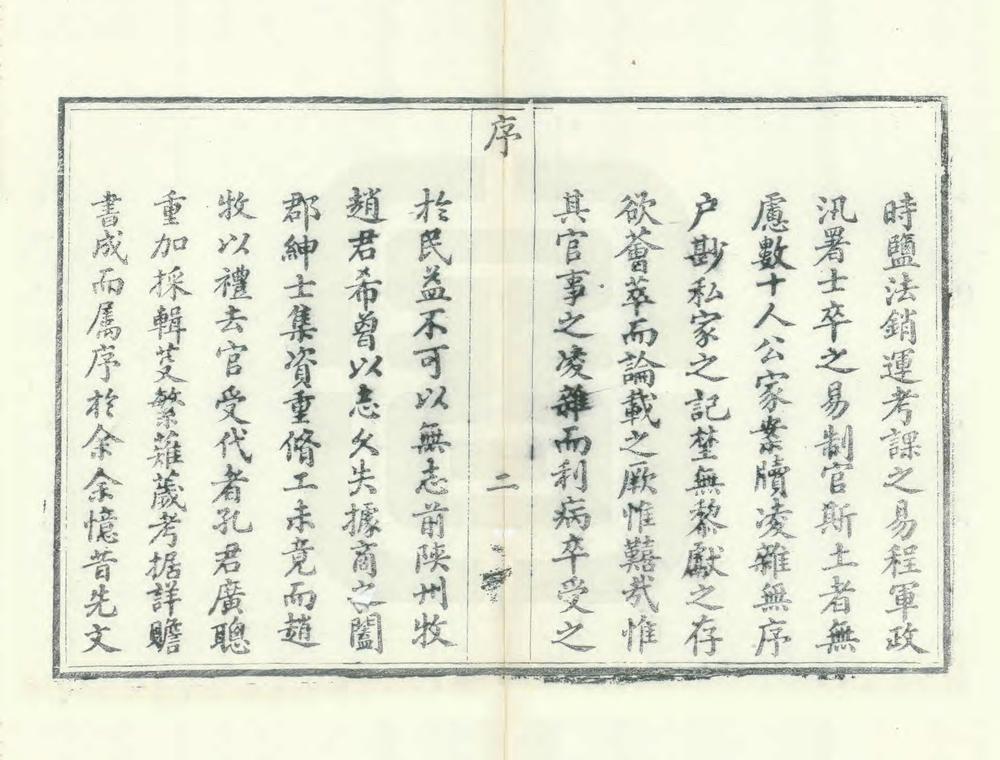 時鹽法銷運考課之易程軍政
汛署士卒之易制官斯土者無
慮數十人公家案牘凌雜無序
户尠私家之記埜無黎獻之存
欲薈萃而論載之厥惟囏哉惟
其官事之凌雜而利病卒受之
序
二
於民益不可以無志前陝州牧
趙君希曾以志久失據商之闔
郡紳士集資重脩工未竟而趙
牧以禮去官受代者孔君廣聰
重加採輯芟繁蕹薉考据詳贍
書成而属序於余余憶昔先文